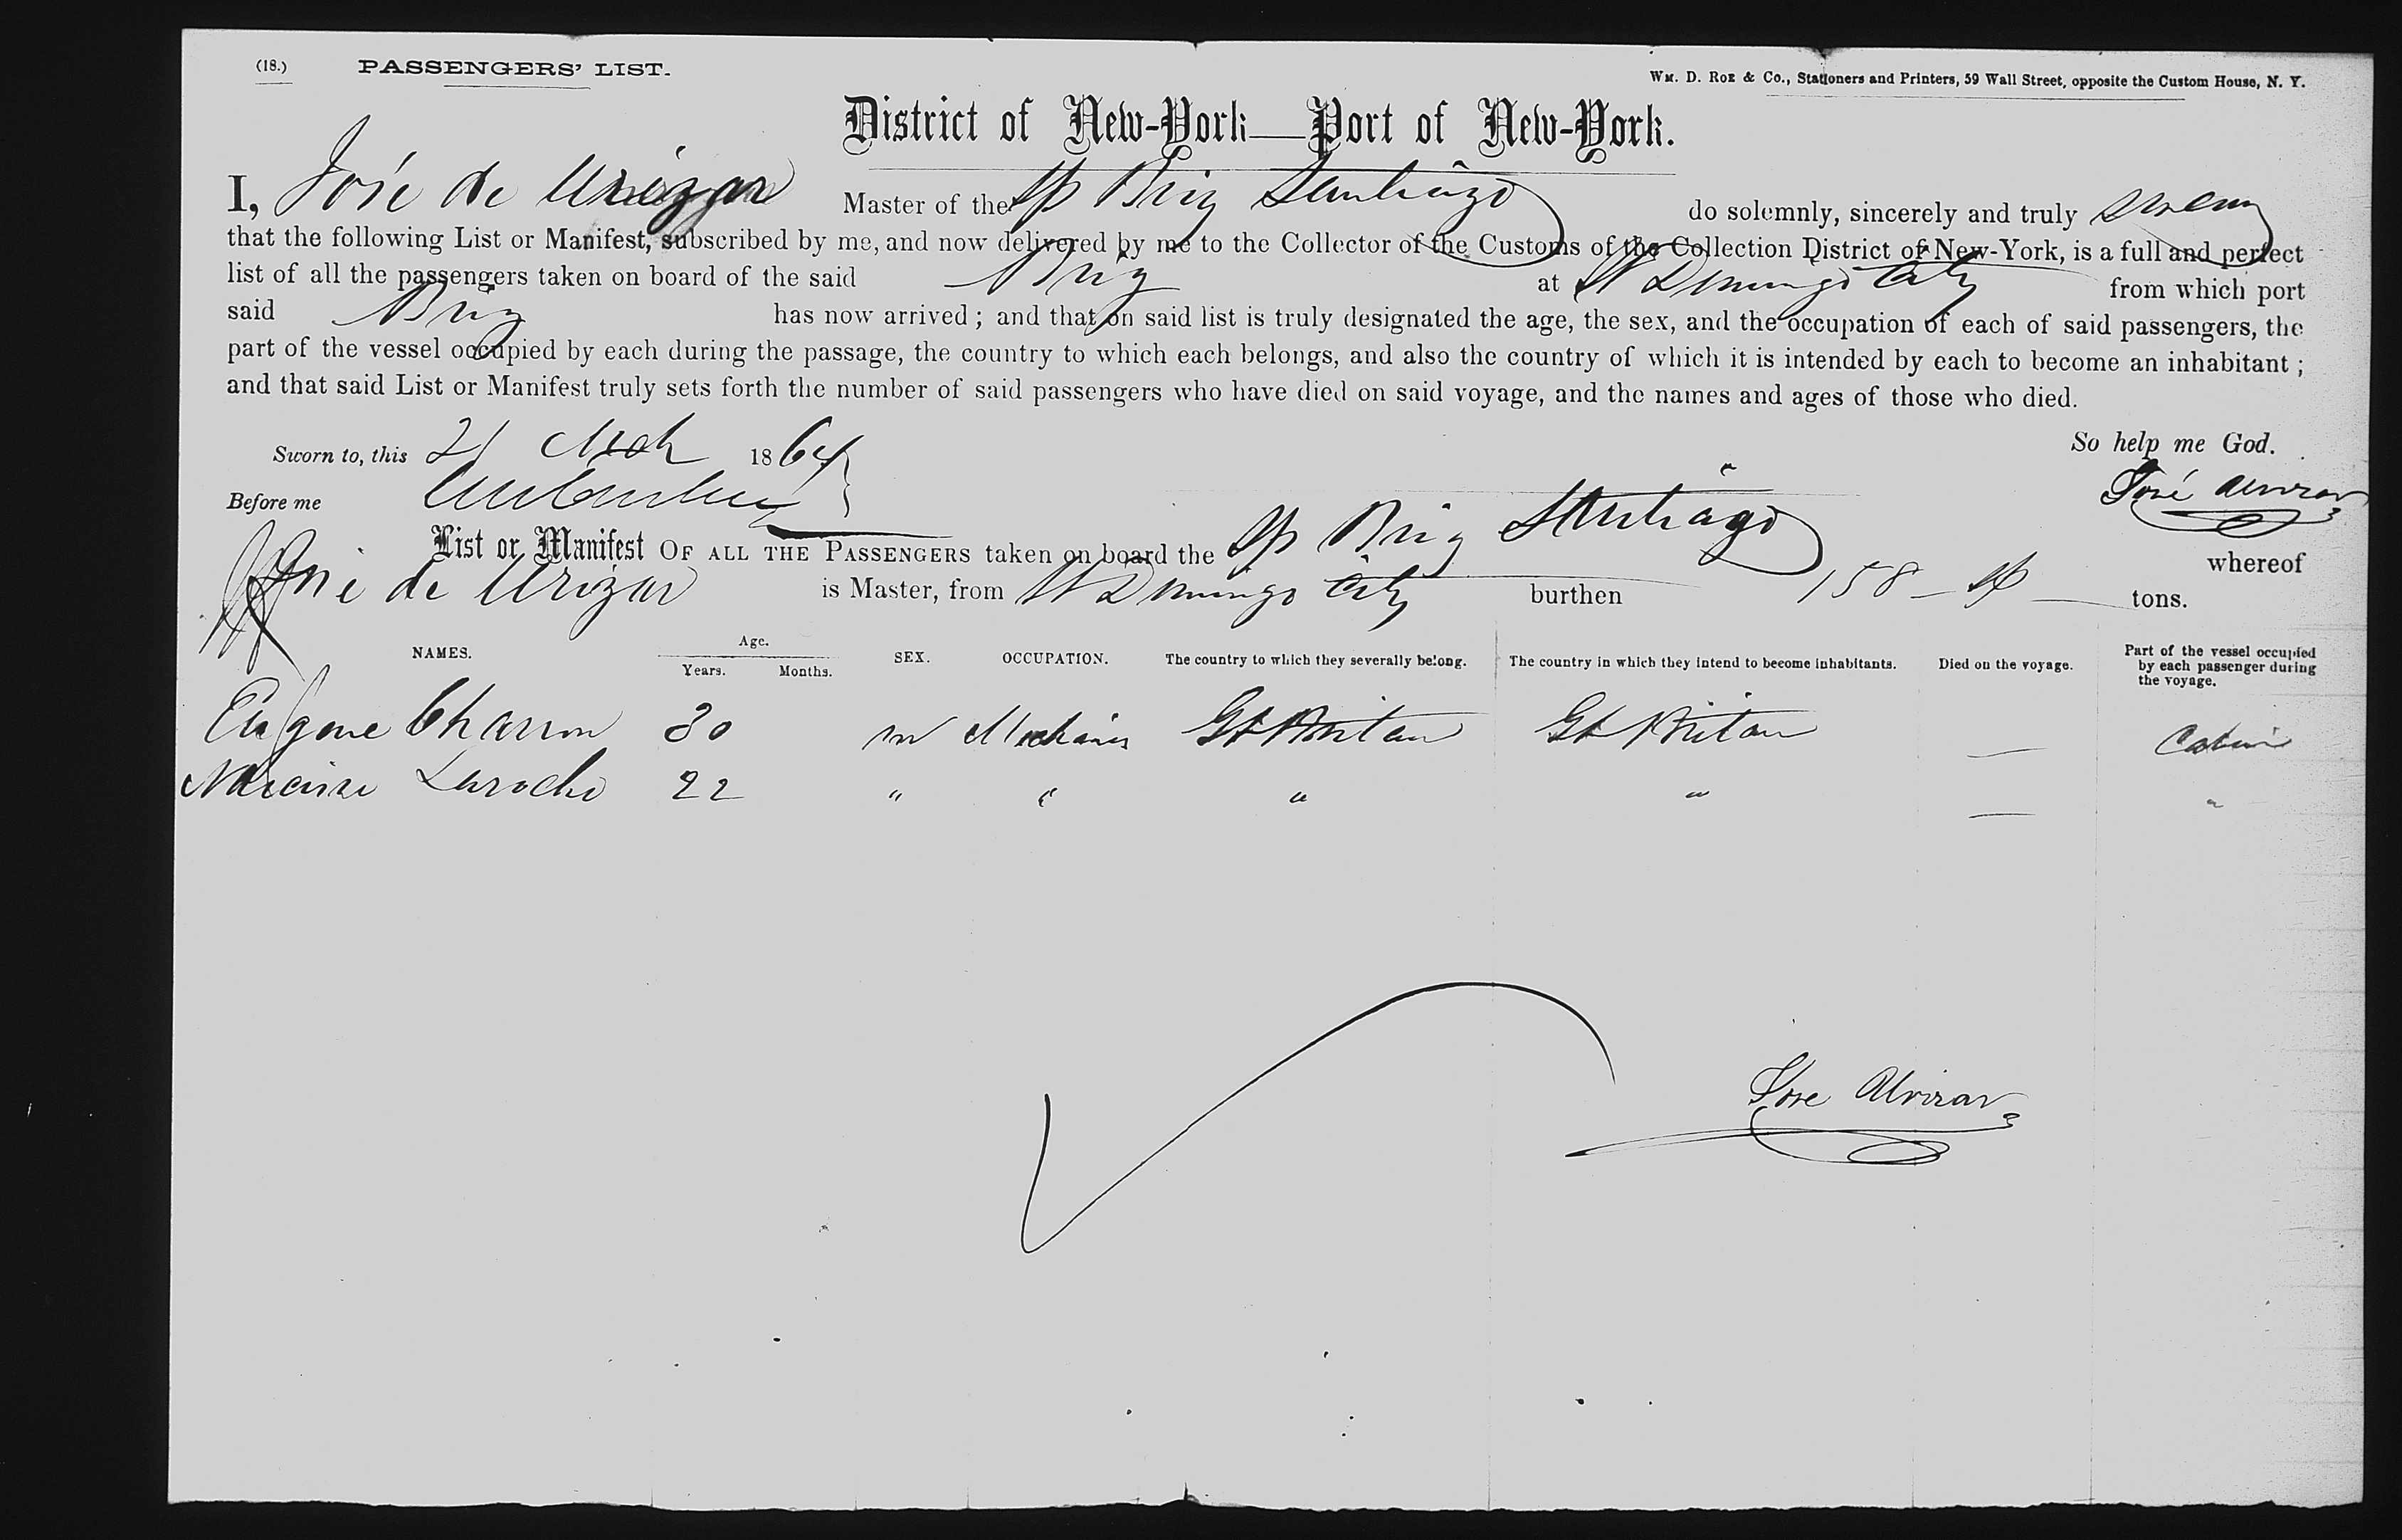 (18.) PASSENGERS' LIST.
WM. D. ROE & Co., Stationers and Printers, 59 Wall Street, opposite the Custom House, N. Y.
District of New-York—Port of New-York.
I, José de Urizar Master of the Sp Brig Santiago do solemnly, sincerely and truly swear
that the following List or Manifest, subscribed by me, and now delivered by me to the Collector of the Customs of the Collection District of New-York, is a full and perfect
list of all the passengers taken on board of the said Brig at St Domingo City from which port
said Brig has now arrived; and that on said list is truly designated the age, the sex, and the occupation of each of said passengers, the
part of the vessel occupied by each during the passage, the country to which each belongs, and also the country of which it is intended by each to become an inhabitant;
and that said List or Manifest truly sets forth the number of said passengers who have died on said voyage, and the names and ages of those who died.
Sworn to, this 21 Mch 1864 So help me God.
Before me José Urizar
List or Manifest OF ALL THE PASSENGERS taken on board the Sp Brig Santiago whereof
José de Urizar is Master, from St Domingo City burthen 158 — tons.
NAMES. Age. Years. Months. SEX. OCCUPATION. The country to which they severally belong. The country in which they intend to become inhabitants. Died on the voyage. Part of the vessel occupied by each passenger during the voyage.
Eugene Charron 30 m Mechanics Gt Britan Gt Britan — Cabin
Narcisse Laroche 22 " " " " — "
Jose Urizar